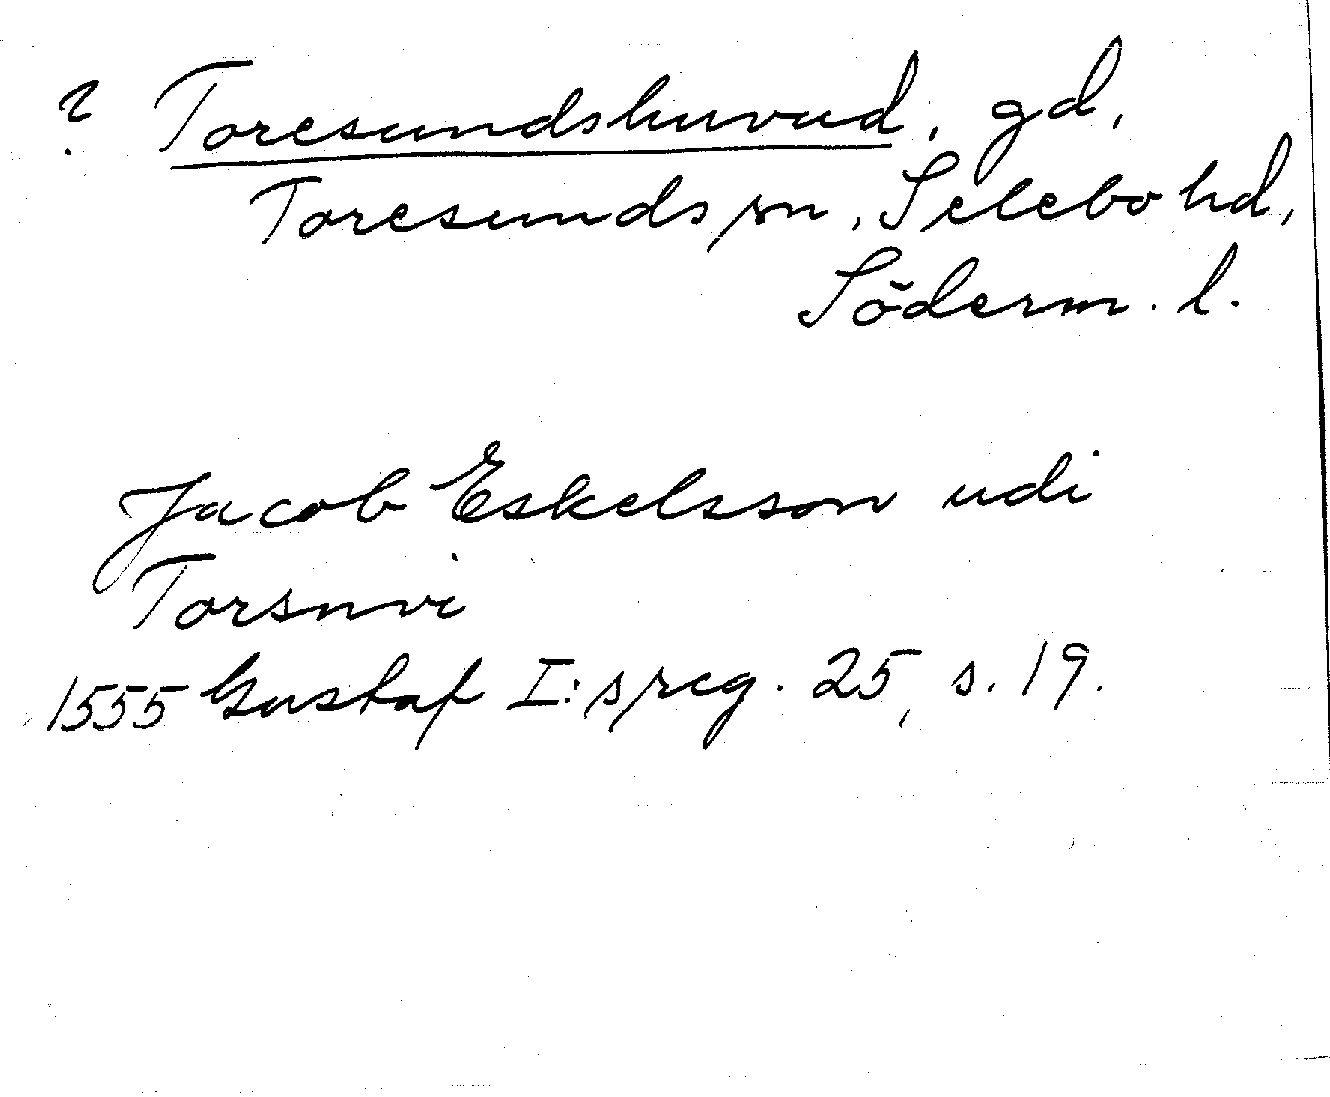 ? Toresundshuvud, gd,
Toresunds sn, Selebo hd,
Söderm. l.
Jacob Eskelsson udi
Torsnvi
1555 Gustaf I:s reg. 25, s. 19.